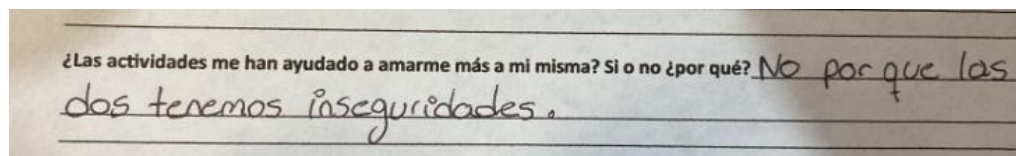 ¿Las actividades me han ayudado a amarme más a mi misma? Si o no ¿por qué? No por que las
dos tenemos inseguridades.